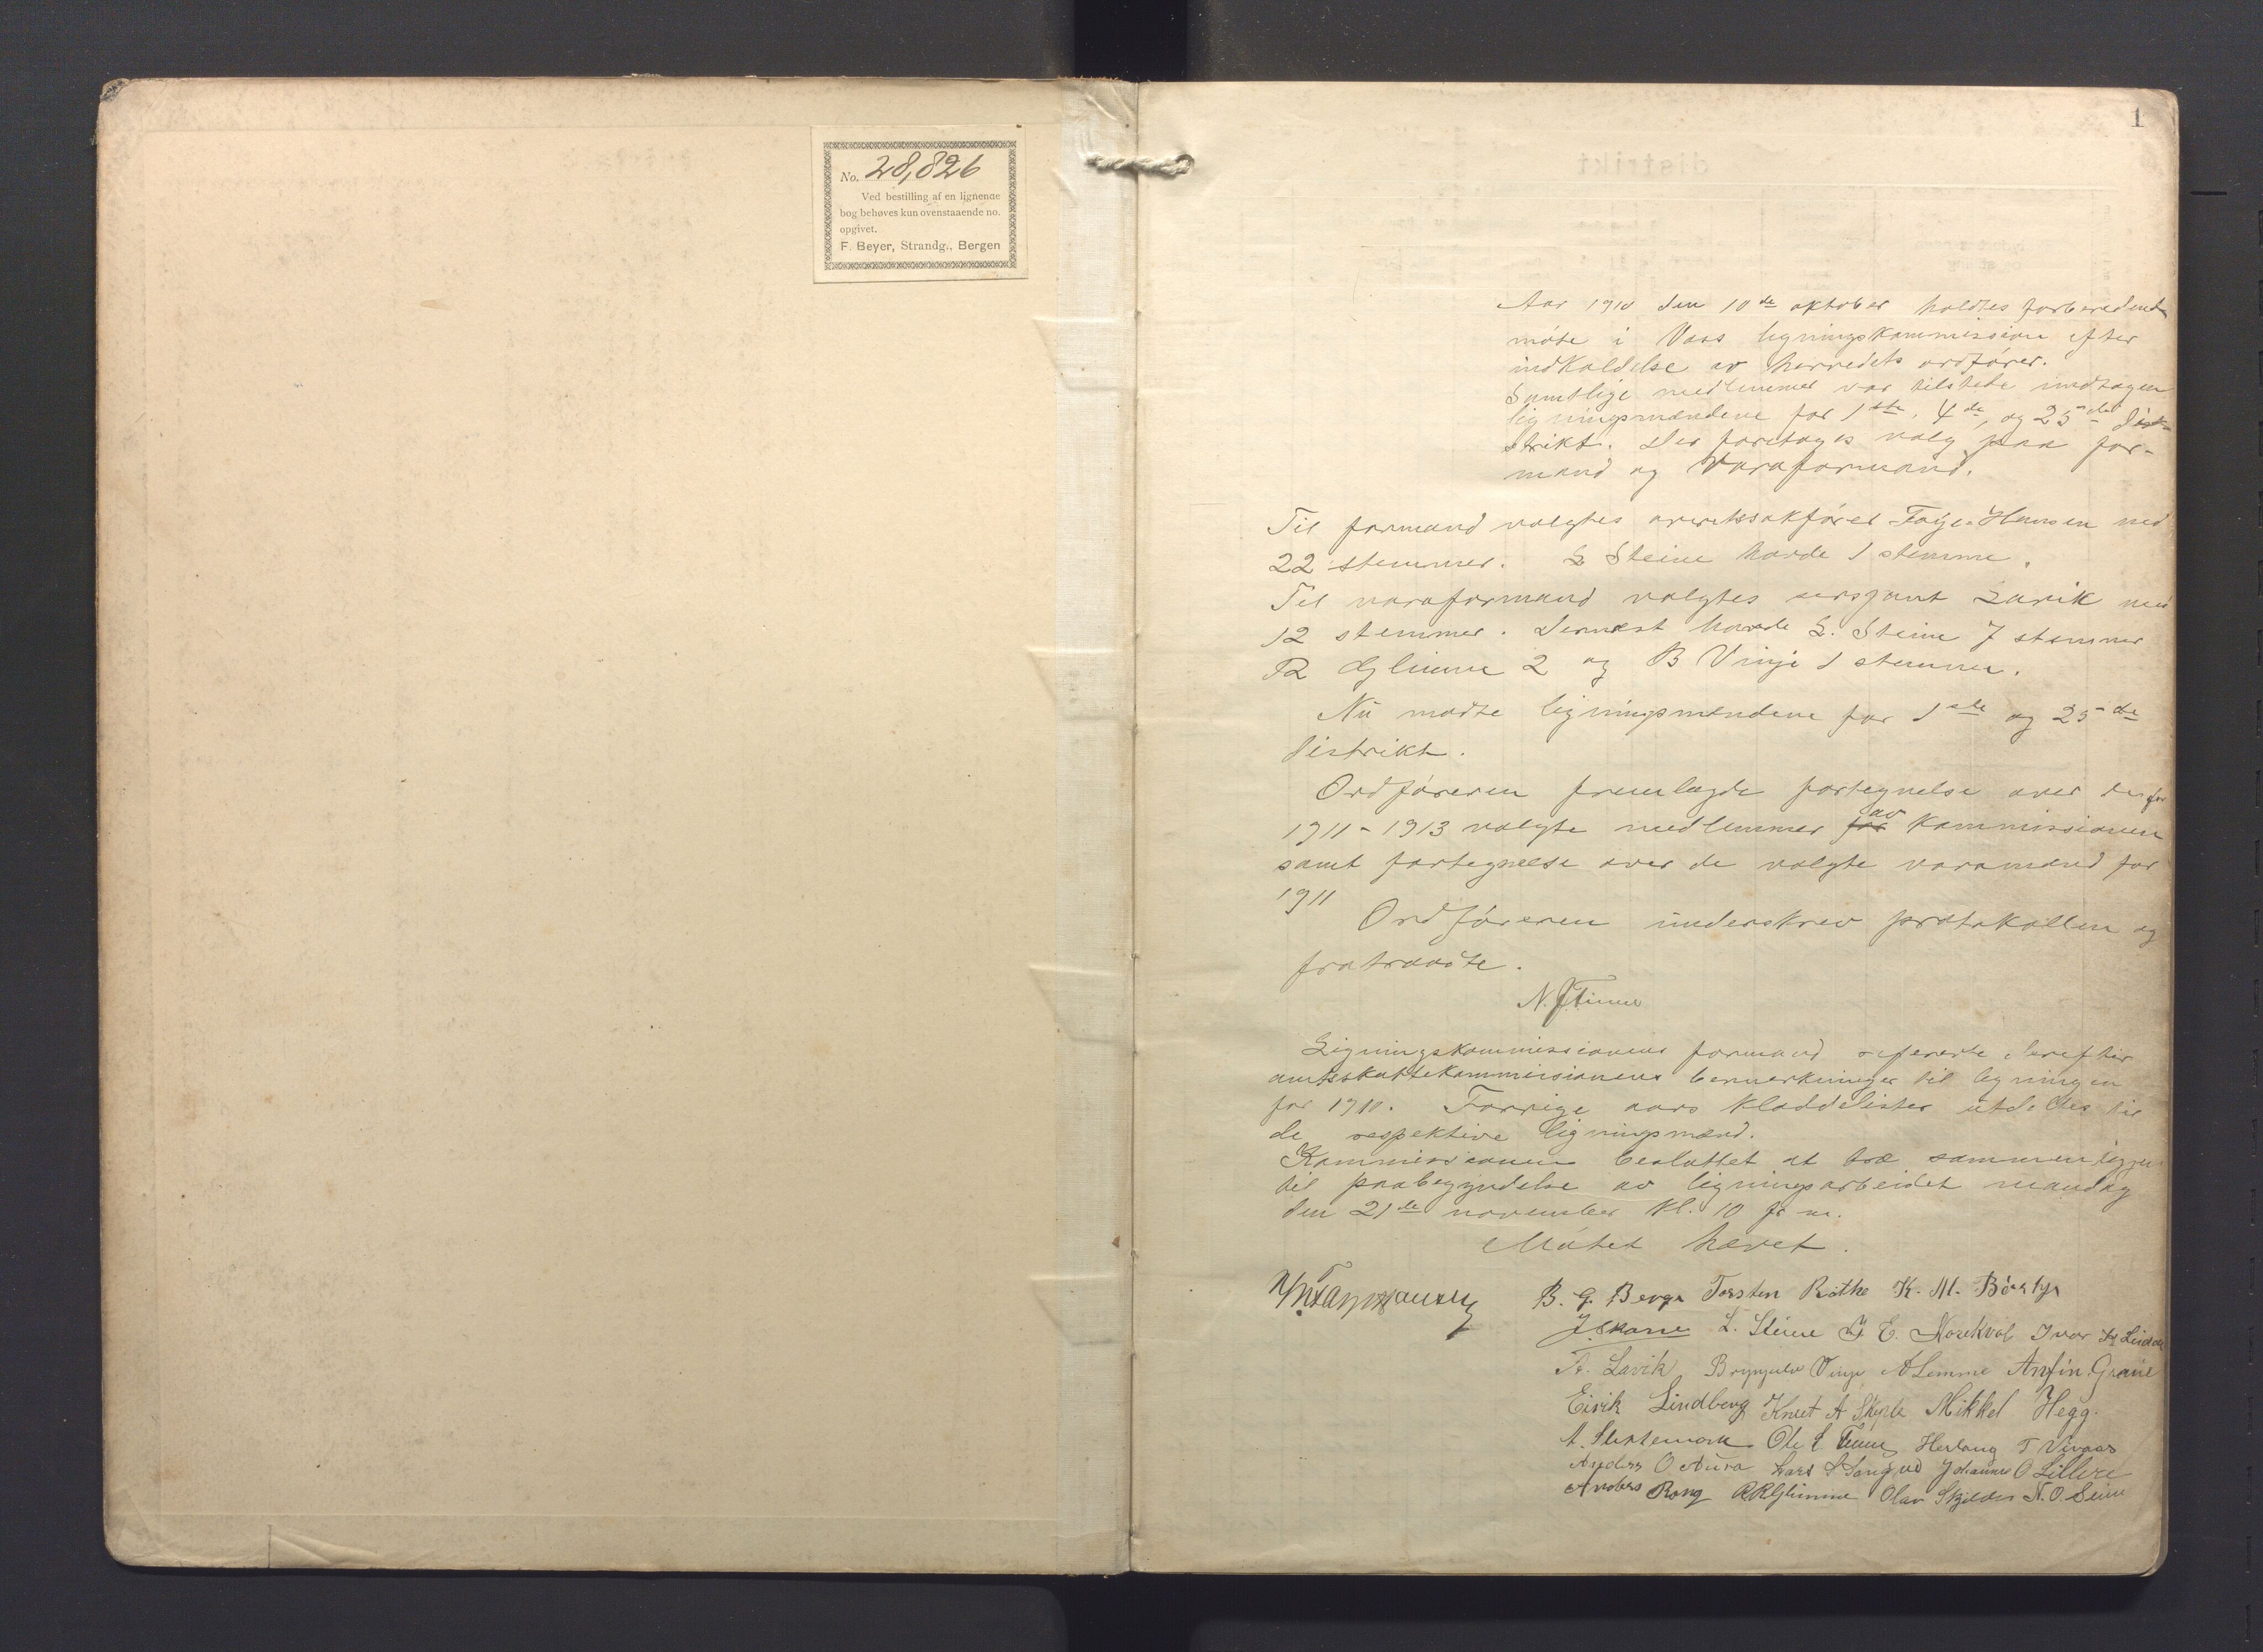 No. 28,826
Ved bestilling af en lignende
bog behøves kun ovenstaaende no.
opgivet.
F. Beyer, Strandg., Bergen
1
distrikt
Aar 1910 den 10de oktober holdtes forberedende
møte i Voss ligningskommission efter
indkaldelse av herredets ordfører.
Samtlige medlemmer var tilstede undtagen
ligningsmændene for 1ste, 4de, og 25de di-
strikt. Der foretoges valg paa for-
mand og Varaformand.
Til formand valgtes overretssakfører Faye-Hansen med
22 stemmer. L Steine havde 1 stemme.
Til varaformand valgtes sersjant Lavik med
12 stemmer. Dernæst havde L. Steine 7 stemmer
R Glimme 2 og B Vinje 1 stemme.
Nu mødte ligningsmændene for 1ste og 25de
distrikt.
Ordføreren fremlagde fortegnelse over de for
1911-1913 valgte medlemmer for av kommissionen
samt fortegnelse over de valgte varamænd for
1911
Ordføreren underskrev protokollen og
fratraadte.
N. Finne
Ligningskommissionens formand refererte derefter
amtsskattekommissionens bemerkninger til ligningen
for 1910. Forrige aars kladdelister utdeltes til
de respektive ligningsmænd.
Kommissionen besluttet at træ sammen igjen
til paabegyndelse av ligningsarbeidet mandag
den 21de november kl. 10 fm.
Møtet hævet.
B. G. Berge Torsten Rothe K. M. Børtye
J. Skorve L. Steine E. Norekvol Ivar Linde
Lavik Brynjulv Vinje A Lemme Anfin Grave
Eirik Lindberg Knut A Skjple Mikkel Hegg.
Ole Herlaug T Vivaas
Anders O Aura Lars Johannes O Lillere
Anders Rong R R Glimme Olav Skjelde N. O. Seim